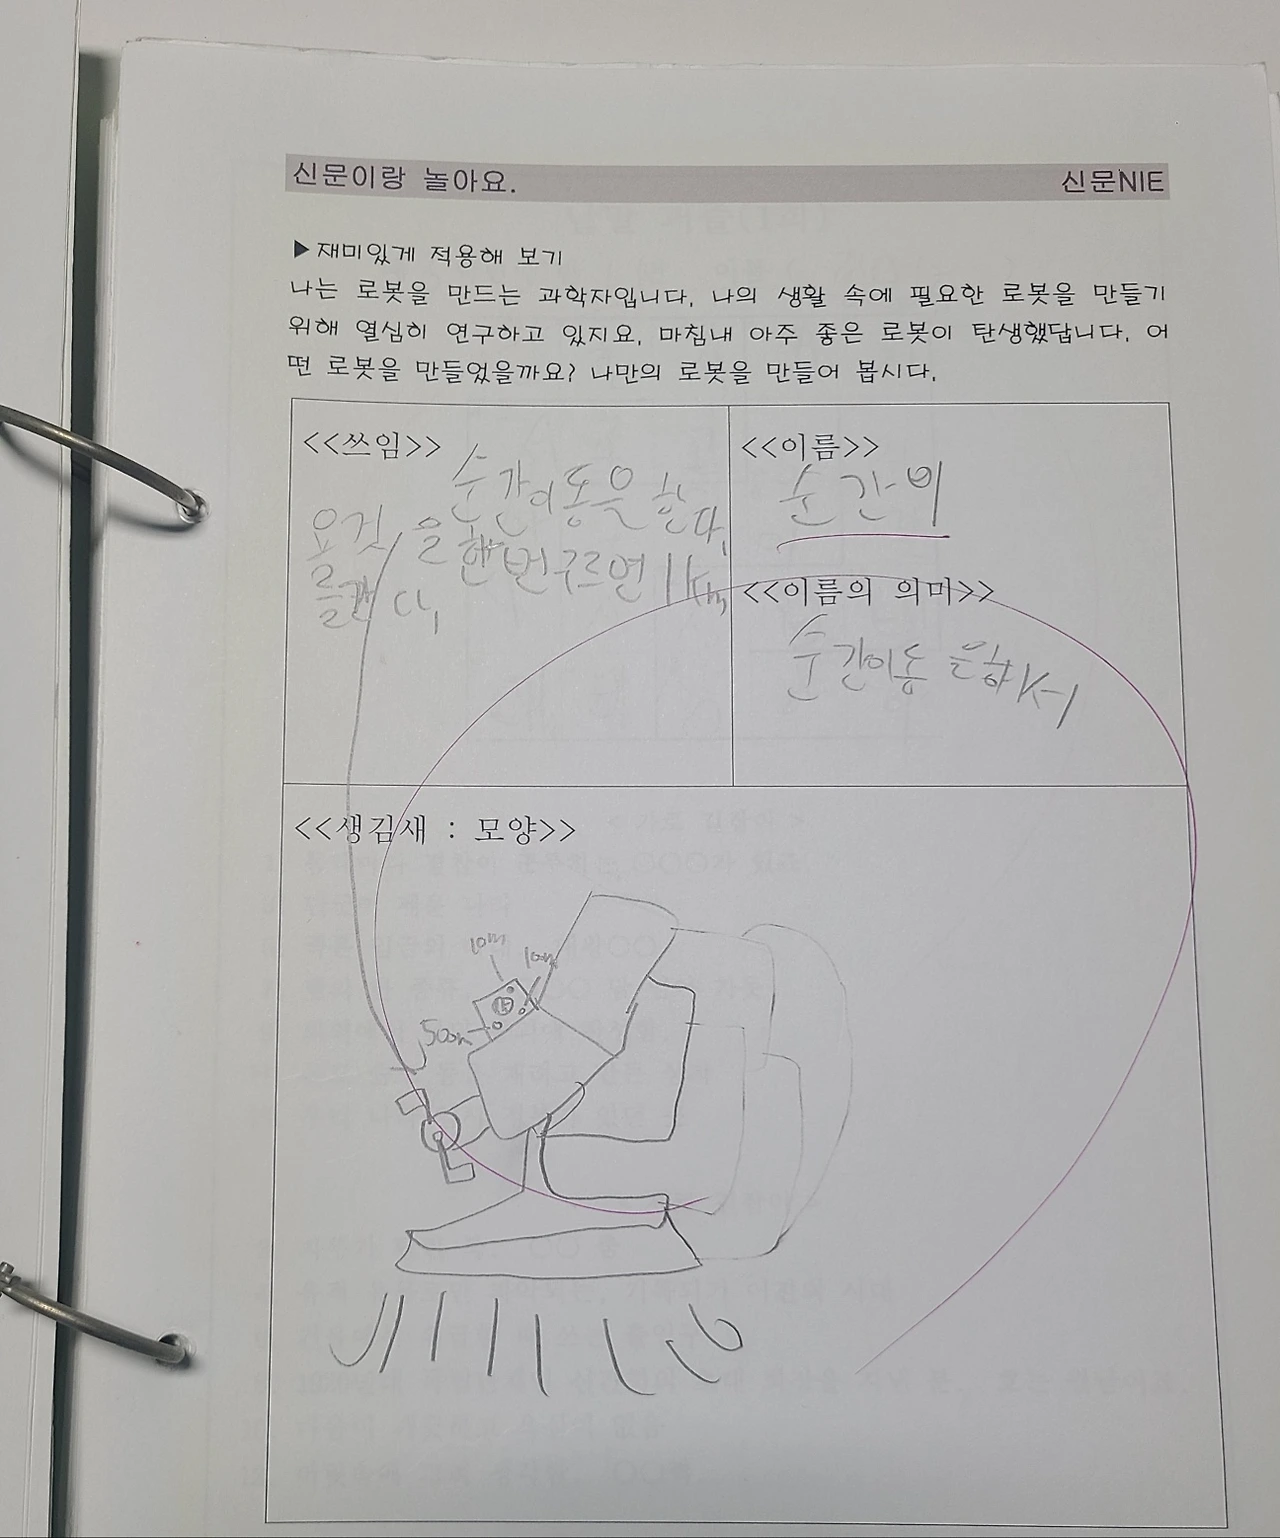 신문이랑 놀아요. 신문NIE
▶재미있게 적용해 보기
나는 로봇을 만드는 과학자입니다. 나의 생활 속에 필요한 로봇을 만들기
위해 열심히 연구하고 있지요. 마침내 아주 좋은 로봇이 탄생했답니다. 어
떤 로봇을 만들었을까요? 나만의 로봇을 만들어 봅시다.
<<쓰임>>
순간이동을 한다.
요것을 한번 구르면 1km
을 간다.
<<이름>>
순간이
<<이름의 의미>>
순간이동을 해서
<<생김새 : 모양>>
10m
500m